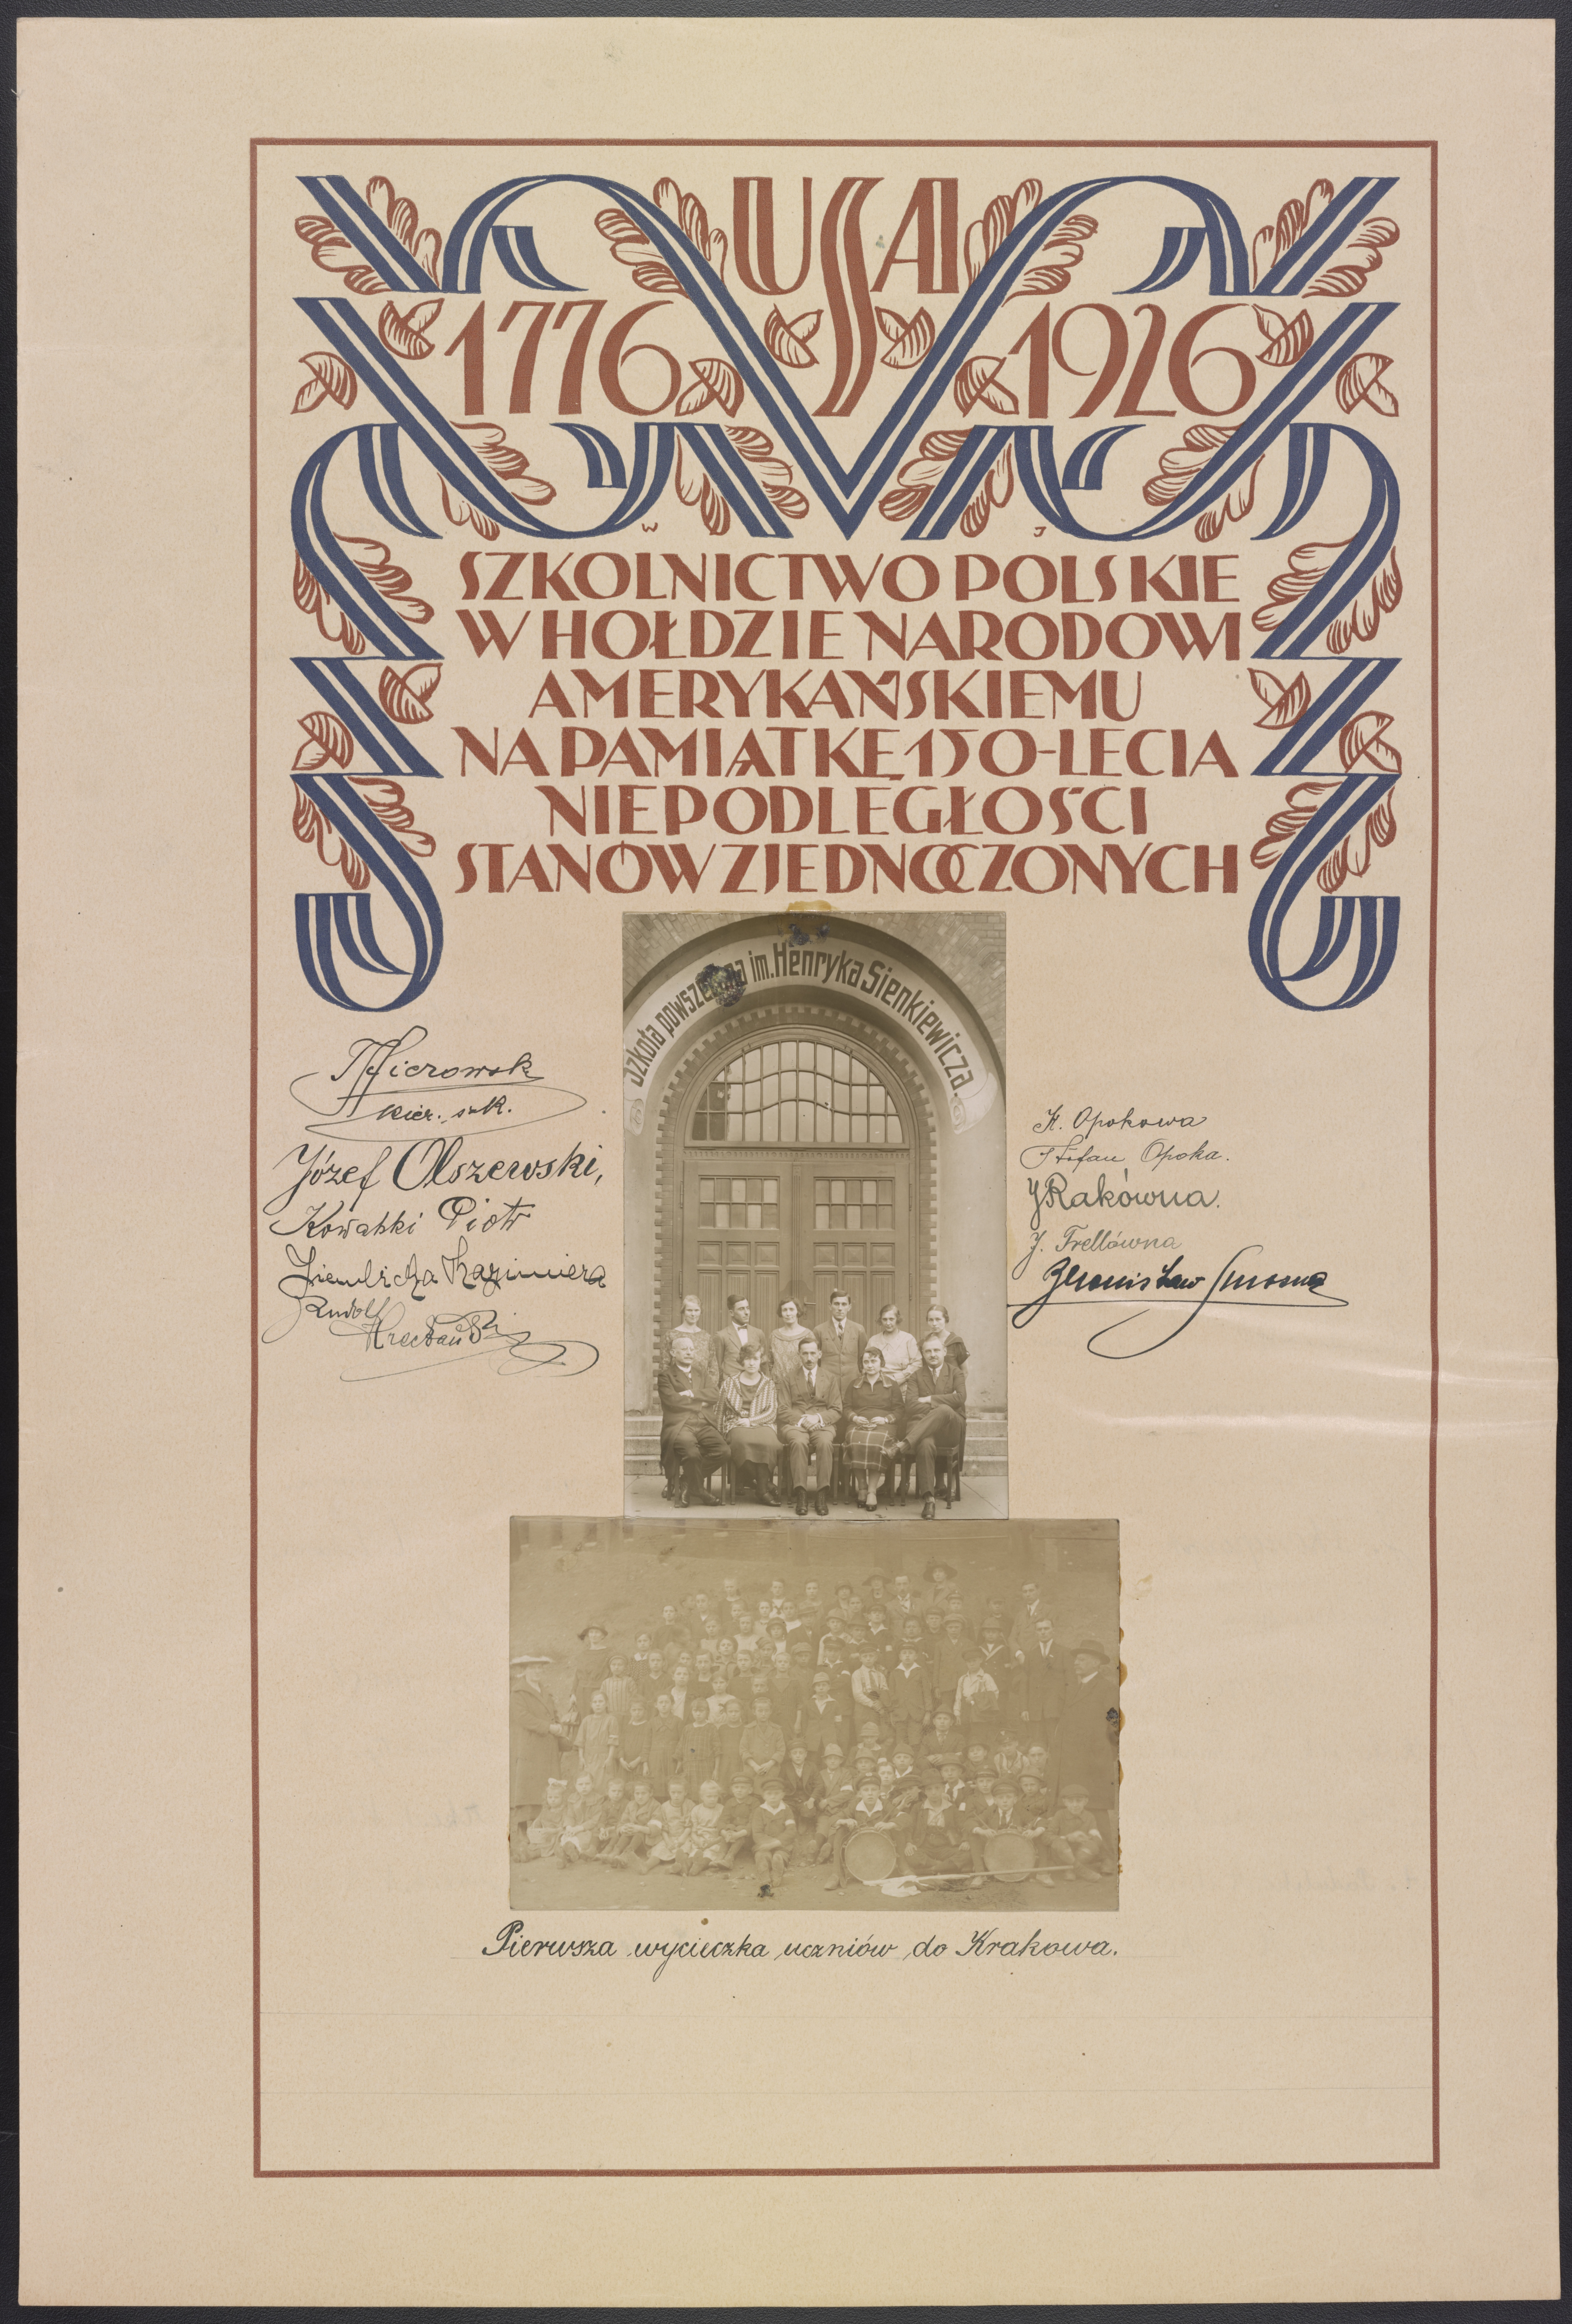 USA
1776 1926
W J
SZKOLNICTWO POLSKIE
W HOŁDZIE NARODOWI
AMERYKAŃSKIEMU
NA PAMIĄTKĘ 150-LECIA
NIEPODLEGŁOŚCI
STANÓW ZJEDNOCZONYCH
Szkoła powszechna im. Henryka Sienkiewicza.
kier. szk.
Józef Olszewski,
Kowalski Piotr
Kazimiera
Rudolf
K. Opokowa
Stefan Opoka.
J Rakówna.
J. Trellówna
Bronisław
Pierwsza wycieczka uczniów do Krakowa.